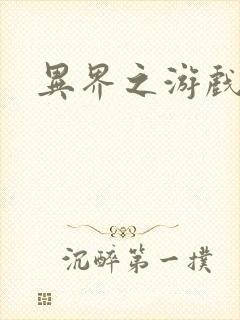 異界之游戲
沉醉第一撲